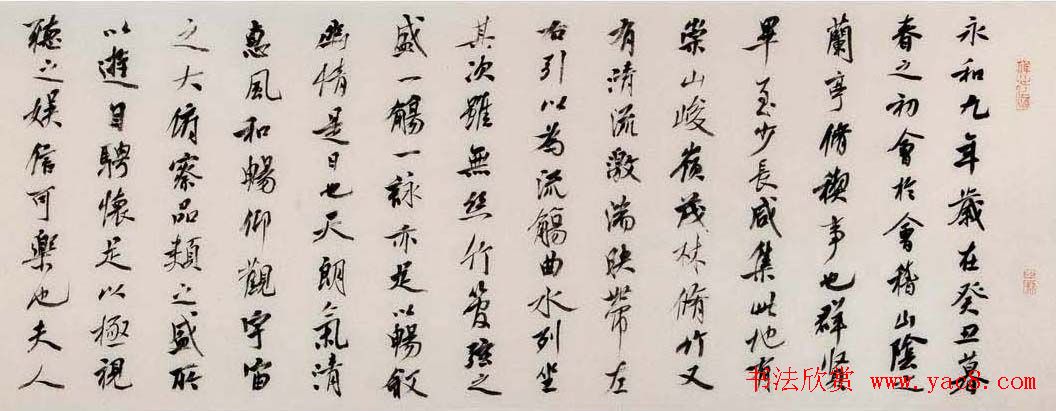 永和九年歲在癸丑暮
春之初會於會稽山陰之
蘭亭脩禊事也群賢
畢至少長咸集此地有
崇山峻嶺茂林脩竹又
有清流激湍映帶左
右引以為流觴曲水列坐
其次雖無絲竹管弦之
盛一觴一詠亦足以暢敘
幽情是日也天朗氣清
惠風和暢仰觀宇宙
之大俯察品類之盛所
以遊目騁懷足以極視
聽之娛信可樂也夫人
书法欣赏 www.yac8.com